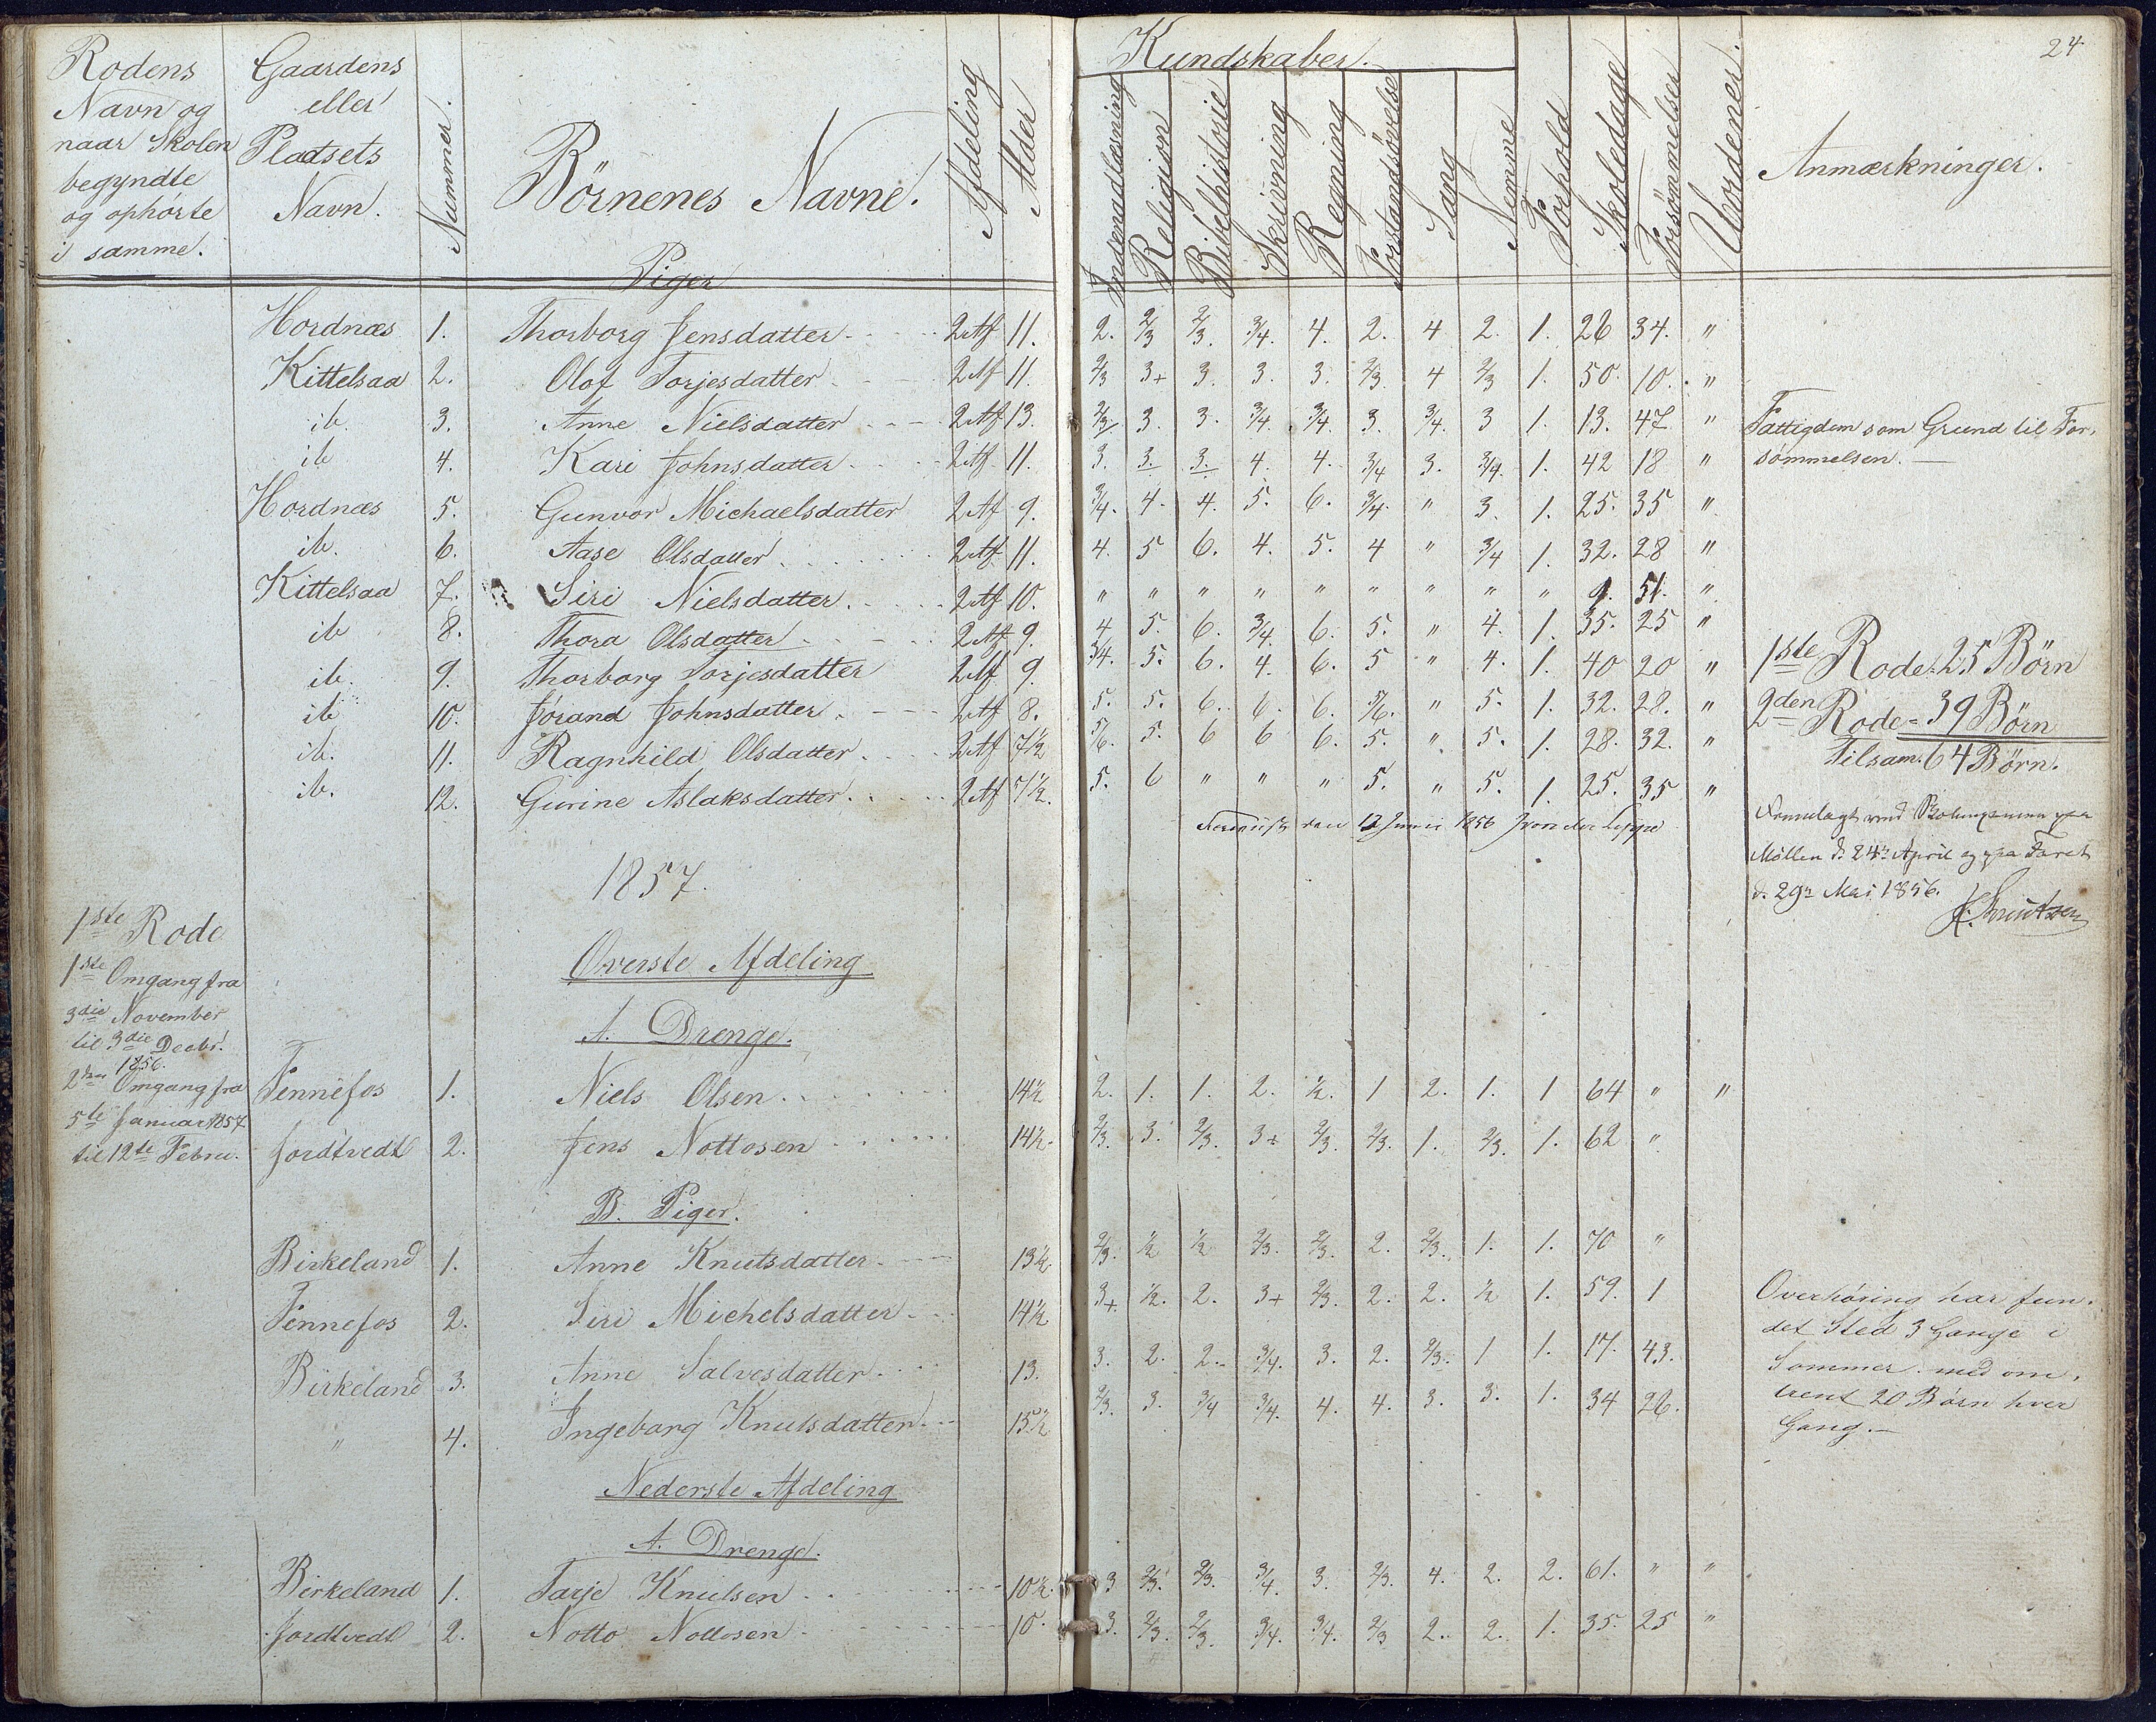 24
Rodens Navn og naar Skolen begyndte og ophørte i samme.
Gaardens eller Pladsets Navn.
Nummer.
Börnenes Navne.
Afdeling
Alder
Kundskaber.
Indenadlæsning
Religion
Bibelhistorie
Skrivning
Regning
Forstandsøvelse
Sang
Nemme
Forhold
Skoledage
Forsømmelser
Uordener.
Anmærkninger.
Piger
Hordnæs 1. Thorborg Jensdatter 2 Af 11. 2. 2/3 2/3. 3/4. 4. 2. 4 2. 1. 26 34. "
Kittelsaa 2. Olof Torjesdatter 2 Af 11. 2/3 3+ 3. 3. 3. 2/3. 4 2/3 1. 50. 10. "
ib. 3. Anne Nielsdatter 2 Af 13. 2/3 3. 3. 3/4. 3/4. 3. 3/4. 3 1. 13. 47 " Fattigdom som Grund til For-
ib 4. Kari Johnsdatter 2 Af 11. 3. 3. 3. 4. 4. 3/4 3. 3/4. 1. 42 18 " sømmelsen.
Hordnæs 5. Gunvor Michaelsdatter 2 Af 9. 3/4. 4. 4. 5. 6. 3/4. " 3. 1. 25. 35 "
ib. 6. Aase Olsdatter 2 Af 11. 4. 5 6. 4. 5. 4 " 3/4 1. 32. 28 "
Kittelsaa 7. Siri Nielsdatter. 2 Af 10. " " " " " " " " " 9. 51. "
ib 8. Thora Olsdatter 2 Af 9. 4 5. 6. 3/4. 6. 5. " 4. 1. 35. 25 "
ib. 9. Thorborg Torjesdatter 2 Af 9. 3/4. 5. 6. 4. 6. 5 " 4. 1. 40 20 " 1ste Rode: 25 Börn
ib 10. Jörand Johnsdatter. 2 Af 8. 5. 5. 6. 6. 6. 5/6. " 5. 1. 32. 28. " 2den Rode = 39 Börn
ib. 11. Ragnhild Olsdatter 2 Af 7 1/2 5/6. 5. 6 6 6. 5. " 5. 1. 28. 32. " Tilsam. 64 Börn.
ib. 12. Gurine Aslaksdatter. 2 Af 7 1/2. 5. 6 " " " 5. " 5. 1. 25. 35 "
den 12 Junii 1856 von der Lippe
Fremlagt ved paa
Möllen d. 24de April og paa Faret
d. 29n Mai 1856.
Knutzen
1857.
1ste Rode
Øverste Afdeling
1ste Omgang fra
3die November
til 3die Decbr.
1856.
A. Drenge.
2den Omgang fra
5te Januar 1857
til 12te Febru.
Fennefos 1. Niels Olsen 14 1/2 2. 1. 1. 2. 1/2. 1 2. 1. 1 64 " "
Jordtvedt 2. Jens Nottosen 14 1/2. 2/3. 3. 2/3. 3+ 2/3. 2/3. 1. 2/3. 1. 62 "
B. Piger.
Birkeland 1. Anne Knutsdatter 13 1/2 2/3. 1/2 1/2 2/3. 2/3. 2. 2/3. 1. 1. 70 "
Fennefos 2. Siri Michelsdatter 14 1/2. 3+ 1/2. 2. 3+ 2/3. 2. 2. 1/2 1. 59. 1
Birkeland 3. Anne Salvesdatter 13. 3. 2. 2. 3/4. 3. 2. 2/3. 1 1. 17. 43.
" 4. Ingeborg Knutsdatter 15 1/2 2/3. 3. 3/4 3/4. 4. 4. 3. 3. 1. 34 26.
Overhøring har fun-
det Sted 3 Gange i
Sommer med om-
trent 20 Børn hver
Gang.
Nederste Afdeling
A. Drenge.
Birkeland 1. Tarje Knutsen 10 1/2. 3 2/3. 2/3. 3/4. 3. 2/3. 4. 2. 2. 61. " "
Jordtvedt 2. Notto Nottosen 10. 3. 2/3. 2/3. 3/4. 3/4. 2/3 2. 2. 1. 35. 25 "